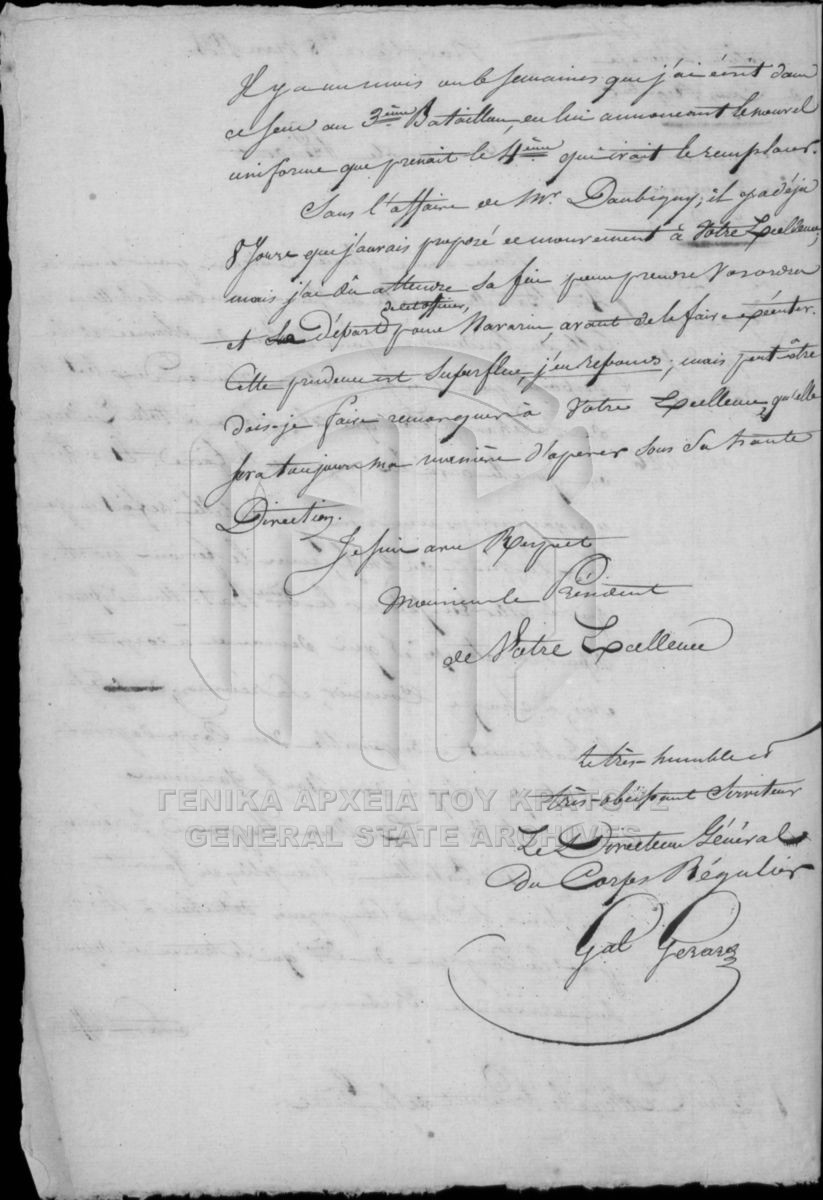 Il y a un mois ou 6 semaines que j'ai écrit dans
ce sens au 3ème Bataillon, en lui annoncant le nouvel
uniforme que prenait le 4ème qui irait le remplacer.
Sans l'affaire de Mr. Daubigny, il y a déja
8 jours que j'aurais proposé ce mouvement à Votre Excellence;
mais j'ai dû attendre sa fin pour prendre vos ordres
de cet officier,
et le Départ pour Navarin, avant de le faire exécuter.
Cette prudence est superflue, j'en reponds; mais peut être
dois-je faire remarquer à Votre Excellence, qu'elle
sera toujours ma manière d'opérer sous sa haute
Direction.
Je suis avec Respect
Monsieur le Président
de Votre Excellence
le très-humble et
très-obéissant Serviteur
Le Directeur Général
Du Corps Régulier
Gal Gerard
ΓΕΝΙΚΑ ΑΡΧΕΙΑ ΤΟΥ ΚΡΑΤΟΥΣ
GENERAL STATE ARCHIVES